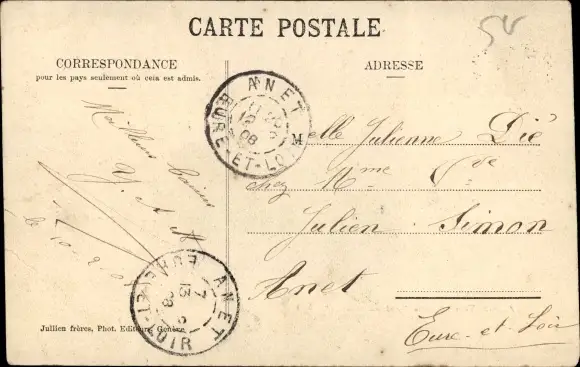 CARTE POSTALE
CORRESPONDANCE
pour les pays seulement où cela est admis.
ADRESSE
Meilleurs baisers
M elle Julienne Dié
chez Mme Vve
Julien Simon
Anet
Eure-et-Loir
ANET
EURE-ET-LOIR
ANET
EURE-ET-LOIR
Jullien frères, Phot. Editeurs, Genève.